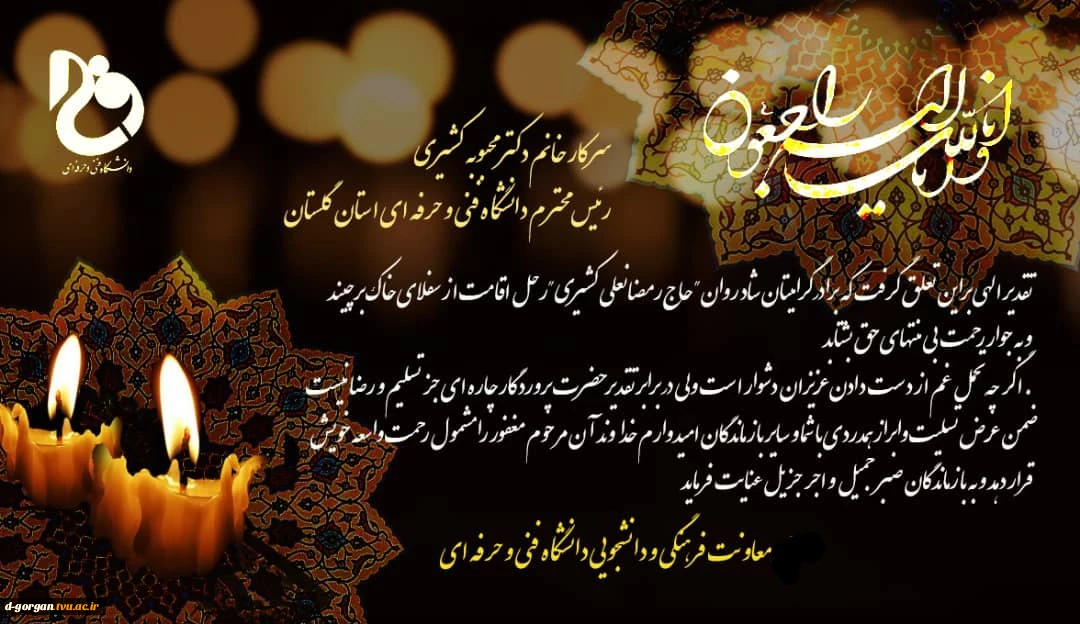 انا لله و انا الیه راجعون
دانشگاه فنی و حرفه ای
سرکار خانم دکتر محبوبه کشیری
رئیس محترم دانشگاه فنی و حرفه ای استان گلستان
تقدیر الهی براین تعلق گرفت که برادرگرامیتان شادروان "حاج رمضانعلی کشیری" رحل اقامت از سفلای خاک برچیند
و به جوار رحمت بی منتهای حق بشتابد
. اگر چه تحمل غم از دست دادن عزیزان دشوار است ولی در برابر تقدیر حضرت پروردگار چاره ای جز تسلیم و رضا نیست
ضمن عرض تسلیت وابراز همدردی با شما و سایر بازماندگان امیدوارم خداوند آن مرحوم مغفور را مشمول رحمت واسعه خویش
قرار دهد و به بازماندگان صبر جمیل و اجر جزیل عنایت فرماید
معاونت فرهنگی و دانشجویی دانشگاه فنی و حرفه ای
d-gorgan.tvu.ac.ir